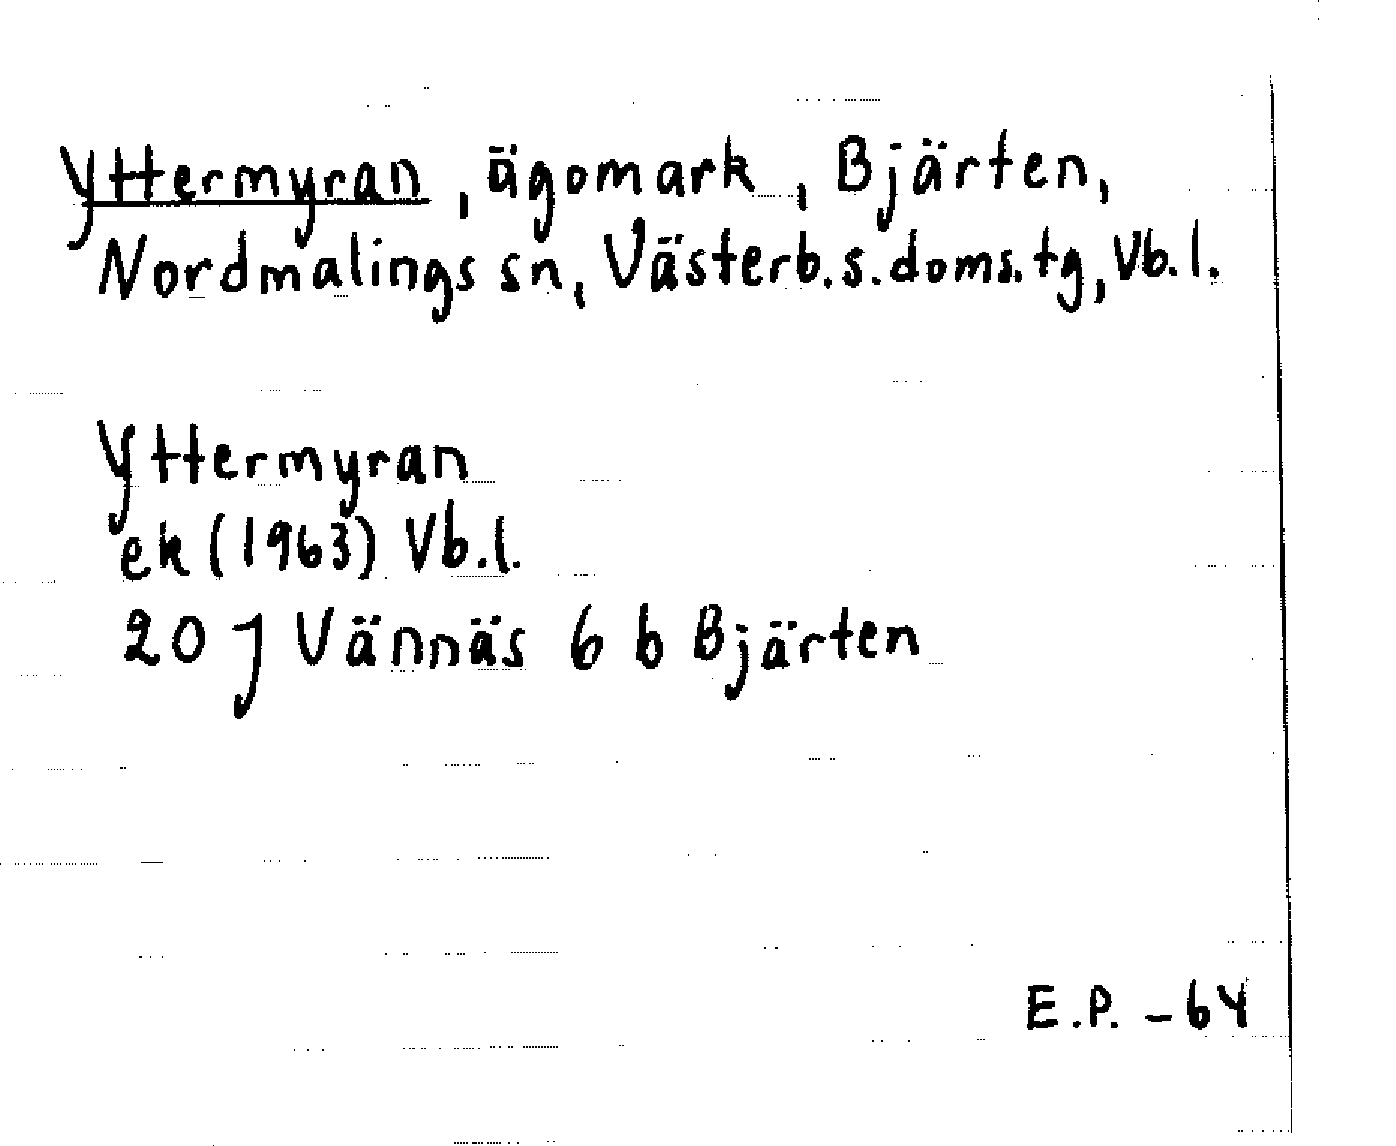 Yttermyran, ägomark, Bjärten,
Nordmalings sn, Västerb.s.doms.tg, Vb.l.
Yttermyran
ek (1963) Vb.l.
20 J Vännäs 6 b Bjärten
E.P. - 64